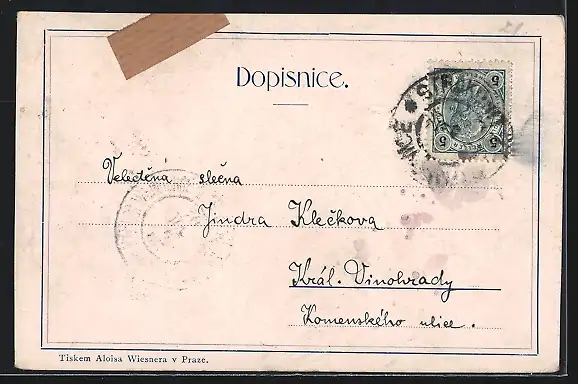 Dopisnice.
5 5
Velectěná slečna
Jindra Klečkova
Král. Vinohrady
Komenského ulice.
Tiskem Aloisa Wiesnera v Praze.